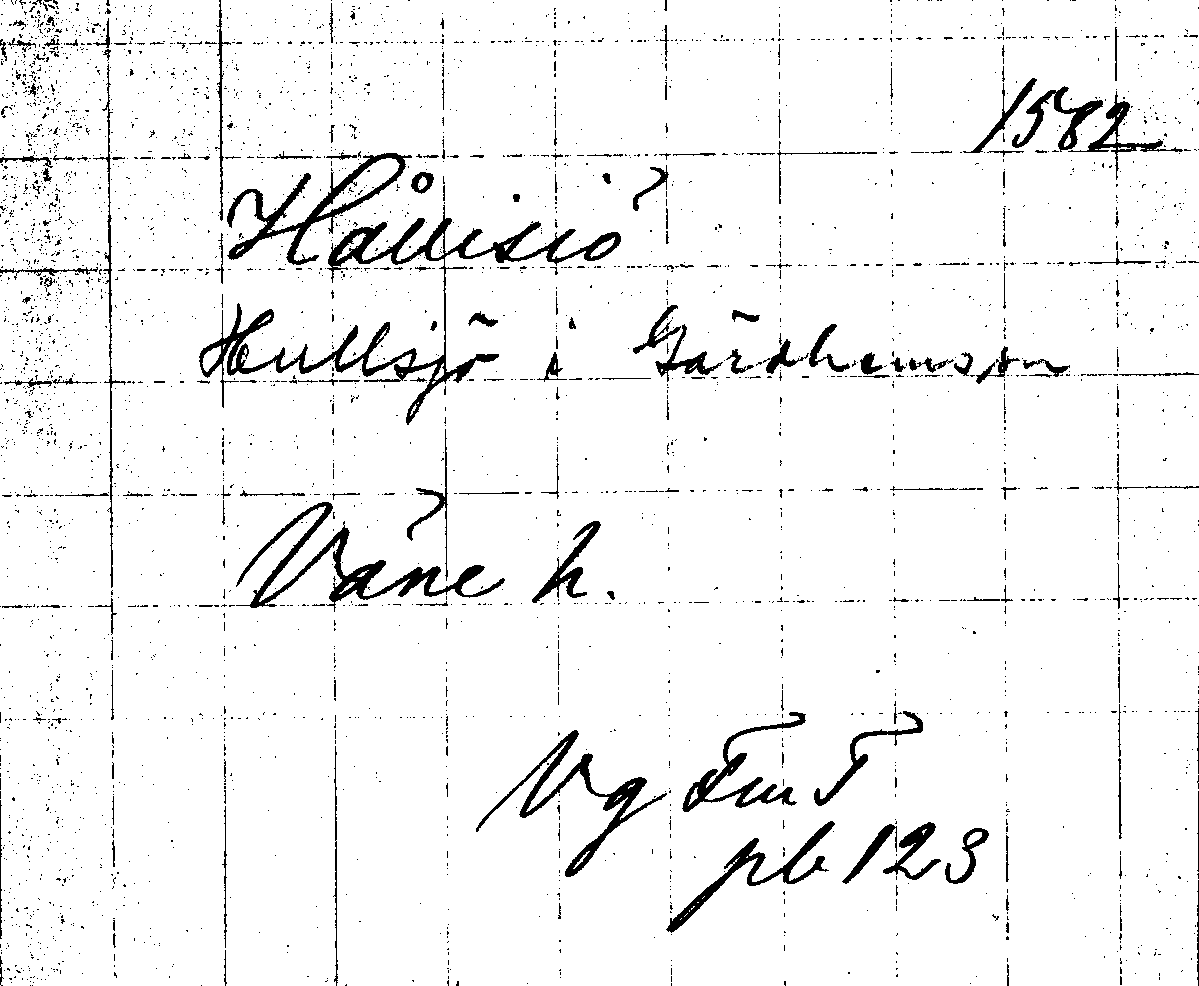 1582
Hållisiö
Hullsjö i Gärdhemssn
Väne h.
Vg FmT
pb 123